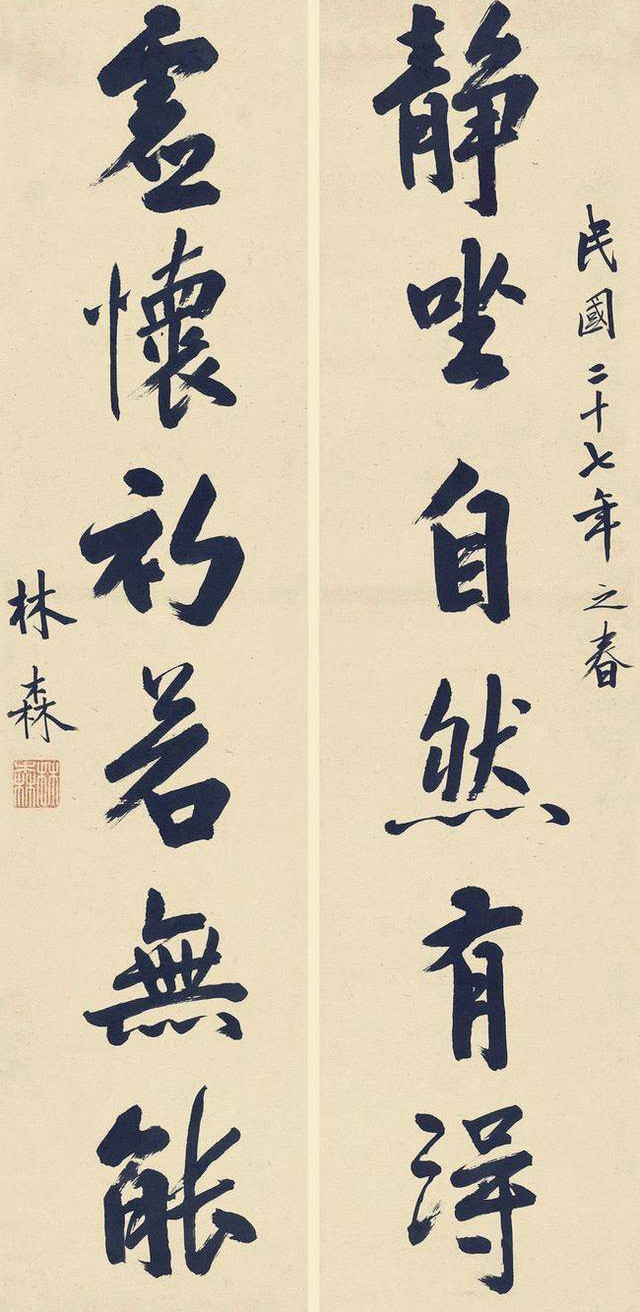 民國二十七年之春
静坐自然有得
虛懷初若無能
林森